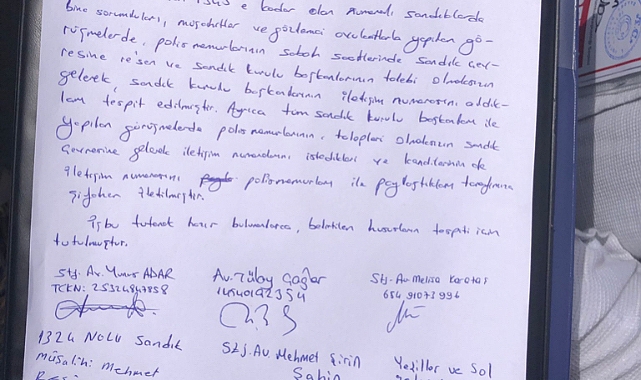 e kadar olan numaralı sandıklarda
bina sorumluları, müşahitler ve gözlemci avukatlarla yapılan gö-
rüşmelerde, polis memurlarının sabah saatlerinde sandık çev-
resine re'sen ve sandık kurulu başkanlarının talebi olmaksızın
gelerek, sandık kurulu başkanlarının iletişim numarasını aldık-
ları tespit edilmiştir. Ayrıca tüm sandık kurulu başkanları ile
yapılan görüşmelerde polis memurlarının, talepleri olmaksızın sandık
çevresine gelerek iletişim numaralarını istedikleri ve kendilerinin de
iletişim numarasını polis memurları ile paylaştıkları tarafımıza
şifahen iletilmiştir.
İşbu tutanak hazır bulunanlarca, belirtilen hususların tespiti için
tutulmuştur.
Stj. Av. Yunus ADAR
TCKN: 25324847858
Av. Tülay Çağlar
14540192354
Stj. Av Melisa Karataş
654 91073 996
1324 Nolu Sandık
Müşahiti Mehmet
Stj. Av Mehmet Şirin
Şahin
Yeşiller ve Sol